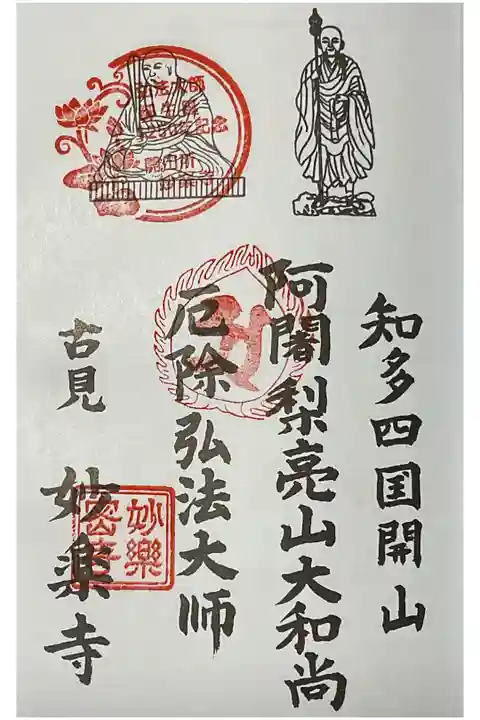 知多四国開山
阿闍梨亮山大和尚
厄除弘法大師
古見 妙楽寺
妙樂
弘法大師